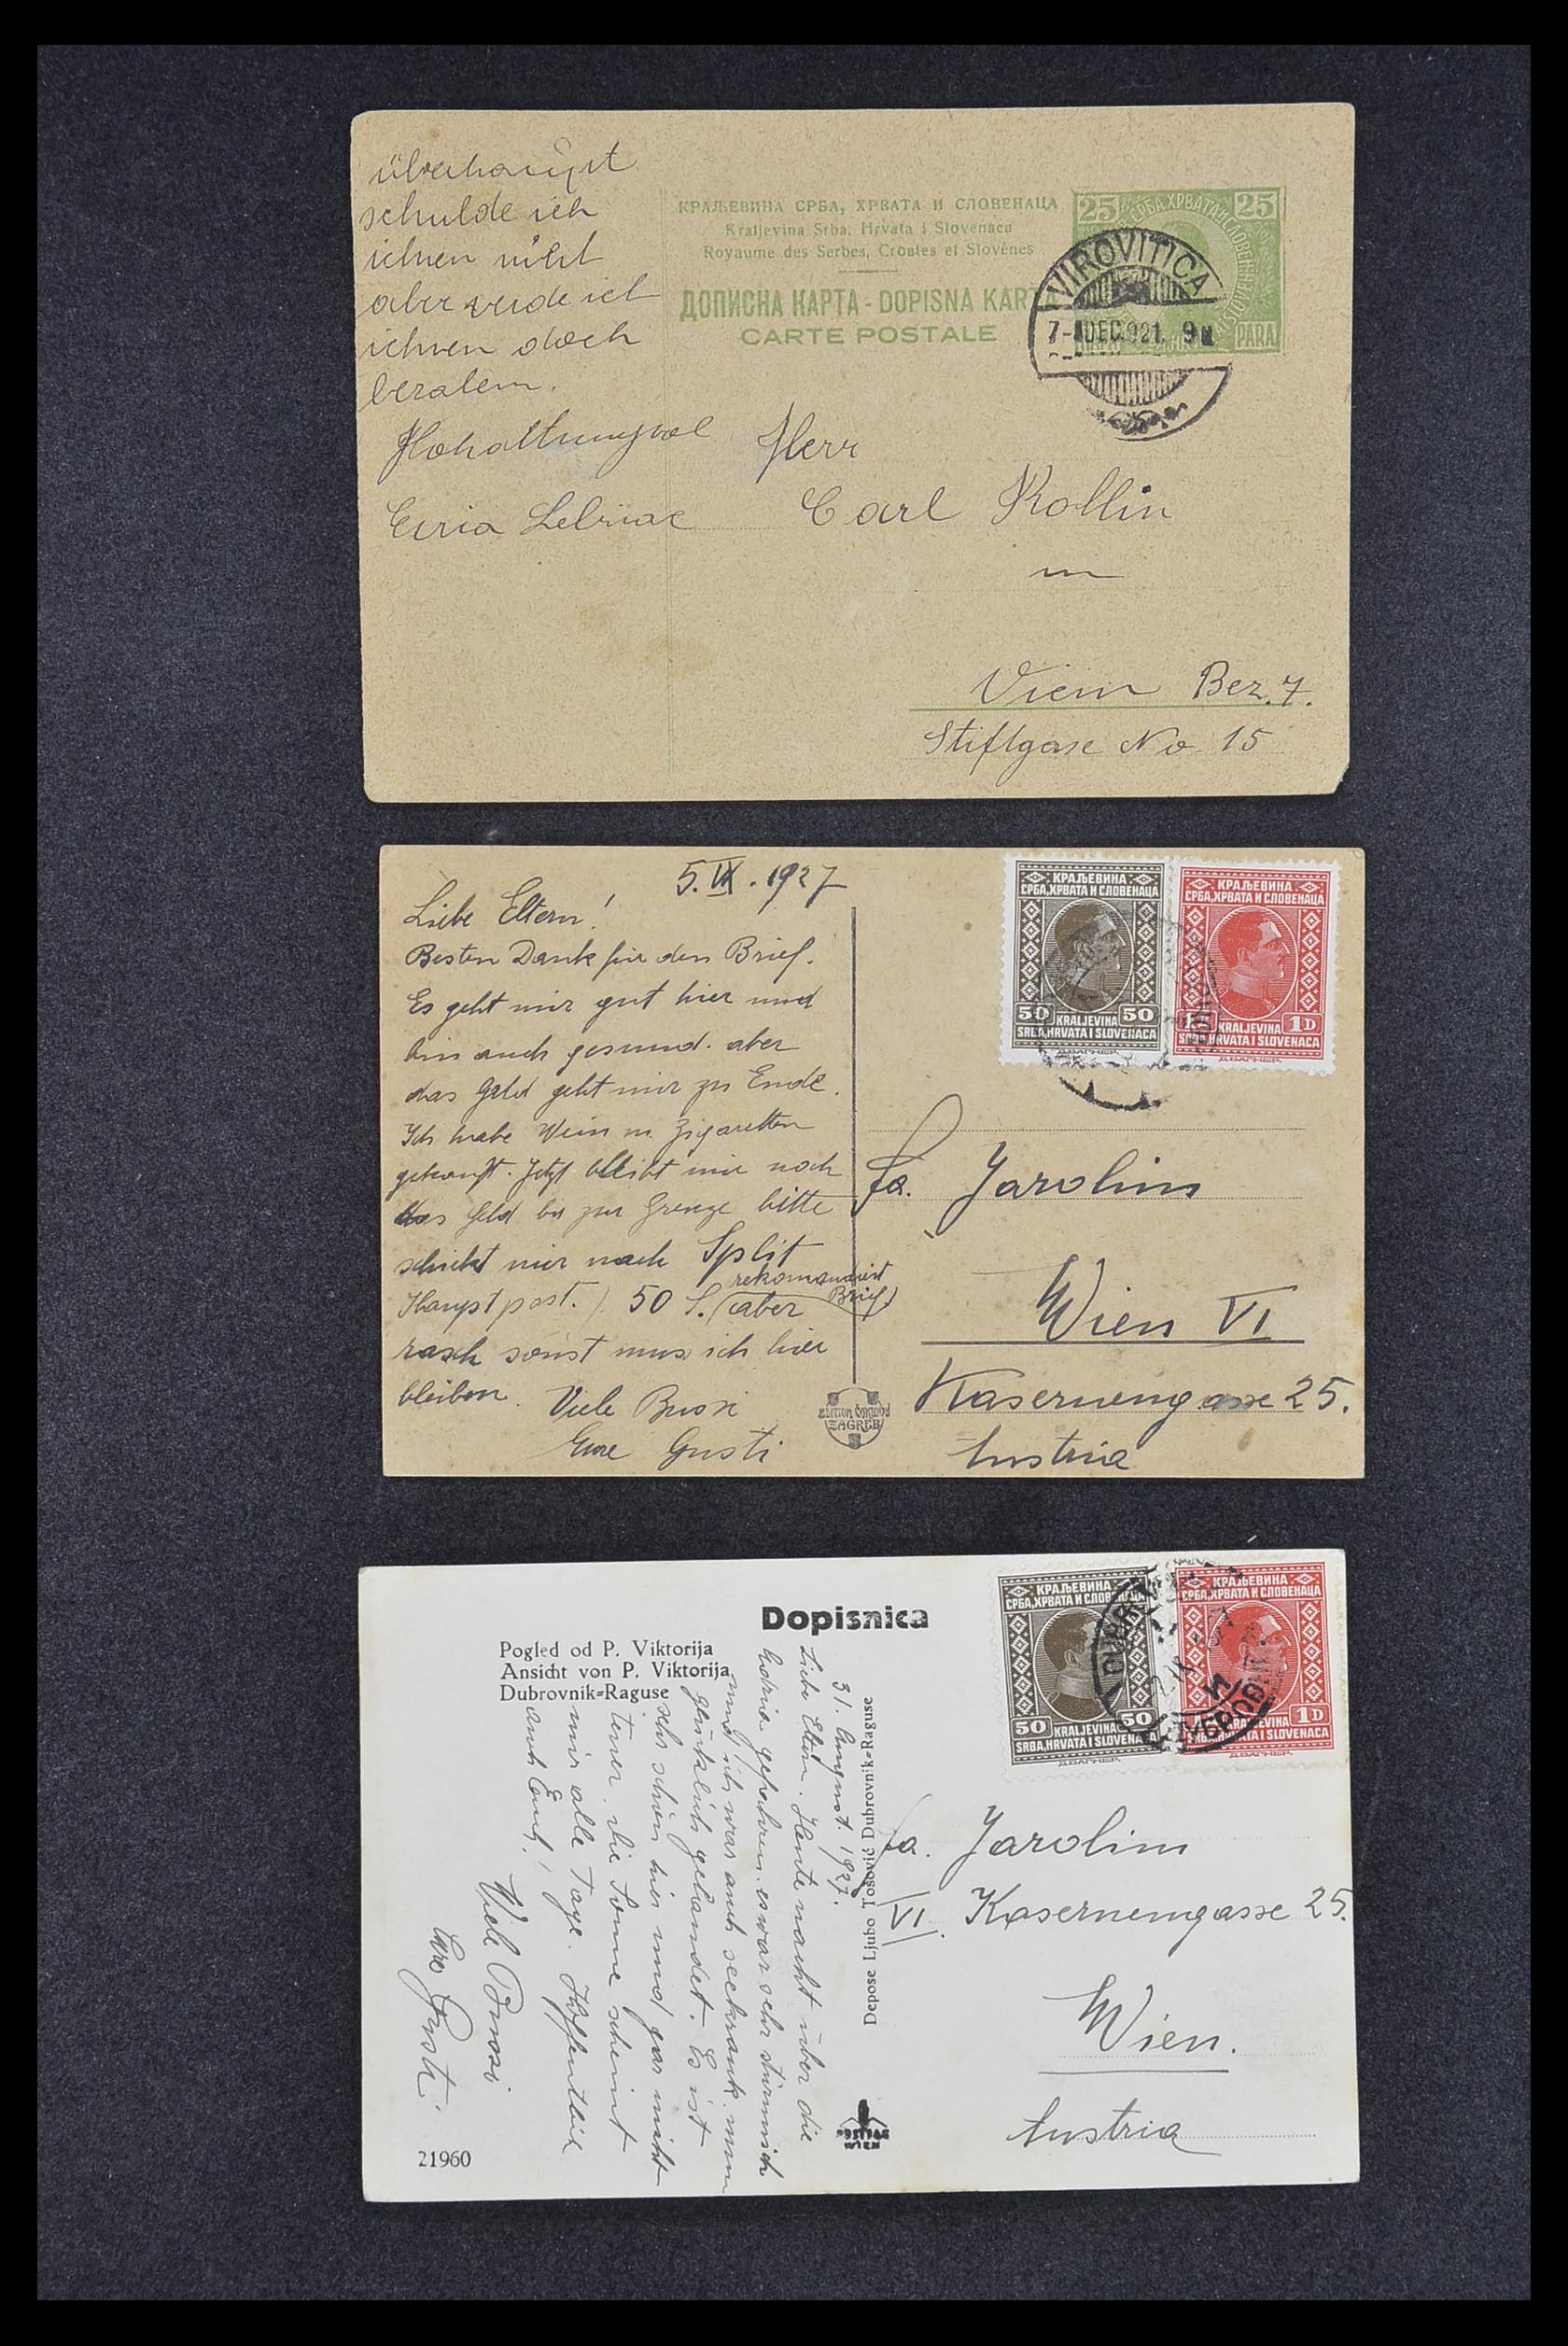 überhaupt
schulde ich
ichnen nicht
aber werde ich
ichnen doch
bezalem.
КРАЉЕВИНА СРБА, ХРВАТА И СЛОВЕНАЦА
Kraljevina Srba, Hrvata i Slovenaca
Royaume des Serbes, Croates et Slovènes
ДОПИСНА КАРТА - DOPISNA KARTA
CARTE POSTALE
25 25
PARA
VIROVITICA
7- DEC. 921. 9
Herr
Carl Kollin
in
Viein Bez. 7.
Stiftgase No 15
5. IX. 1927
Liebe Eltern!
Besten Dank für den Brief.
Es geht mir gut hier und
bin auch gesund. aber
das Geld geht mir zu Ende.
Ich habe Wein u. Zigaretten
gekauft. Jetzt bleibt mir noch
das Geld bis zur Grenze bitte
schickt mir nach Split
Hauptpost.) 50 S. (aber
rekomandiert
Brief)
rasch sonst mus ich hier
bleiben. Viele Bussi
Eure Gusti
EDITION
ZAGREB
КРАЉЕВИНА
СРБА,ХРВАТА И СЛОВЕНАЦА
50 50
KRALJEVINA
SRBA,HRVATA I SLOVENACA
КРАЉЕВИНА
СРБА,ХРВАТА И СЛОВЕНАЦА
1D
KRALJEVINA
SRBA,HRVATA I SLOVENACA
Fa. Jarolim
Wien VI
Kasernengasse 25.
Austria
Dopisnica
Pogled od P. Viktorija
Ansicht von P. Viktorija
Dubrovnik=Raguse
31. August. 1927.
Liebe Eltern. Heute nacht über die
Hadria gefahren. es war sehr stürmisch
und ich war auch seekrank. nun
glücklich gelandet. Es ist
sehr schön hier und gar nicht
teuer. die Sonne scheint
mir alle Tage. Hoffentlich
auch Euch!
Viele Bussi
Eure Gusti.
21960
Depose Ljubo Tošović Dubrovnik=Raguse
WIEN
КРАЉЕВИНА
СРБА,ХРВАТА И СЛОВЕНАЦА
50 50
KRALJEVINA
SRBA,HRVATA I SLOVENACA
КРАЉЕВИНА
СРБА,ХРВАТА И СЛОВЕНАЦА
1D
KRALJEVINA
SRBA,HRVATA I SLOVENACA
Fa. Jarolim
VI. Kasernengasse 25.
Wien.
Austria